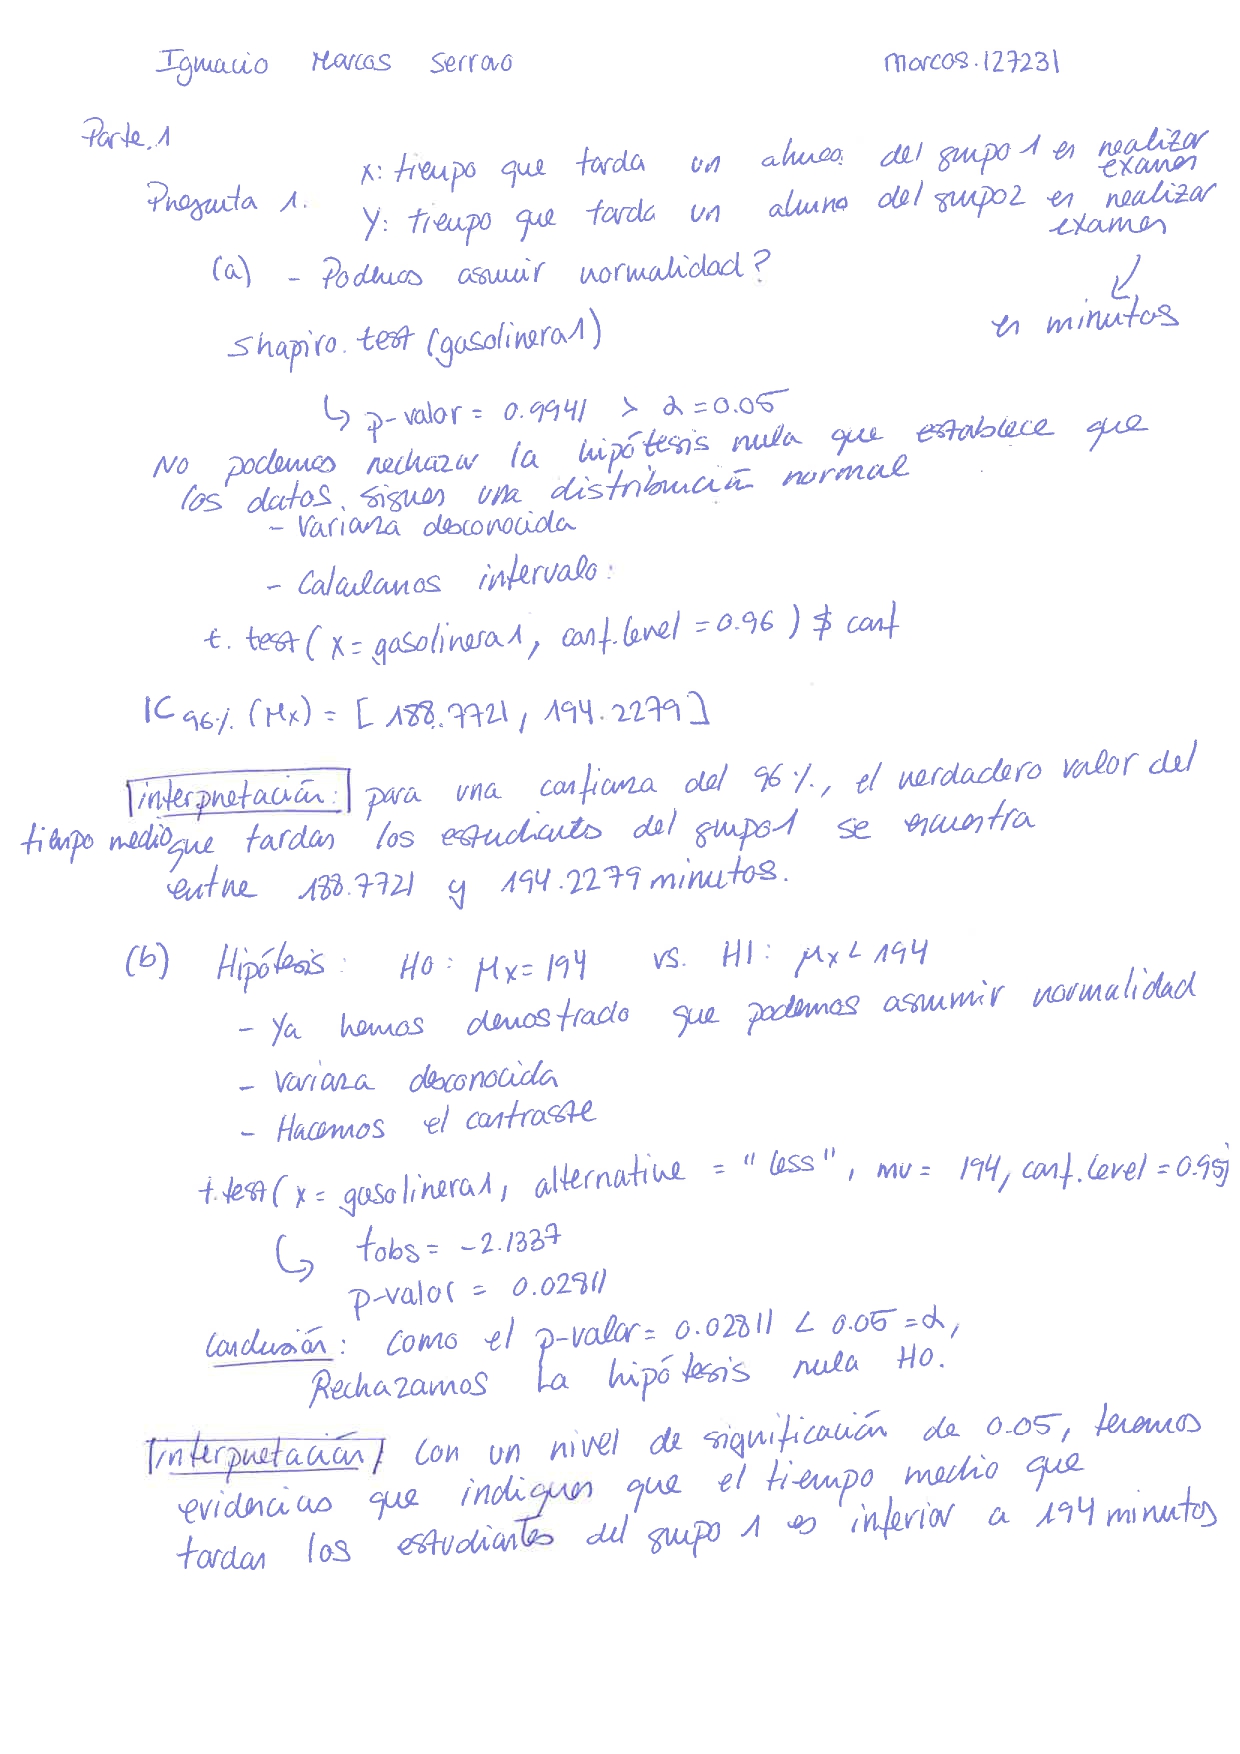 Ignacio Marcos Serrano
marcos.127231
Parte.1
x: tiempo que tarda un alumno del grupo 1 en realizar
examen
Pregunta 1.
Y: tiempo que tarda un alumno del grupo2 en realizar
examen
(a) - Podemos asumir normalidad?
en minutos
shapiro.test (gasolinera1)
↳ p-valor = 0.9941 > α = 0.05
No podemos rechazar la hipótesis nula que establece que
los datos. siguen una distribución normal
- Varianza desconocida
- Calculamos intervalo:
t.test( x = gasolinera1, conf.level = 0.96 ) $ conf
IC 96% (μx) = [ 188.7721, 194.2279 ]
interpretación: para una confianza del 96%, el verdadero valor del
tiempo medio que tardan los estudiantes del grupo1 se encuentra
entre 188.7721 y 194.2279 minutos.
(b) Hipótesis: H0: μx = 194 vs. H1: μx < 194
- Ya hemos demostrado que podemos asumir normalidad
- Varianza desconocida
- Hacemos el contraste
t.test( x = gasolinera1, alternative = "less", mu = 194, conf.level = 0.95)
↳ tobs = -2.1337
p-valor = 0.02811
Conclusión: Como el p-valor = 0.02811 < 0.05 = α,
Rechazamos La hipótesis nula H0.
interpretación Con un nivel de significación de 0.05, tenemos
evidencias que indiquen que el tiempo medio que
tardan los estudiantes del grupo 1 es inferior a 194 minutos